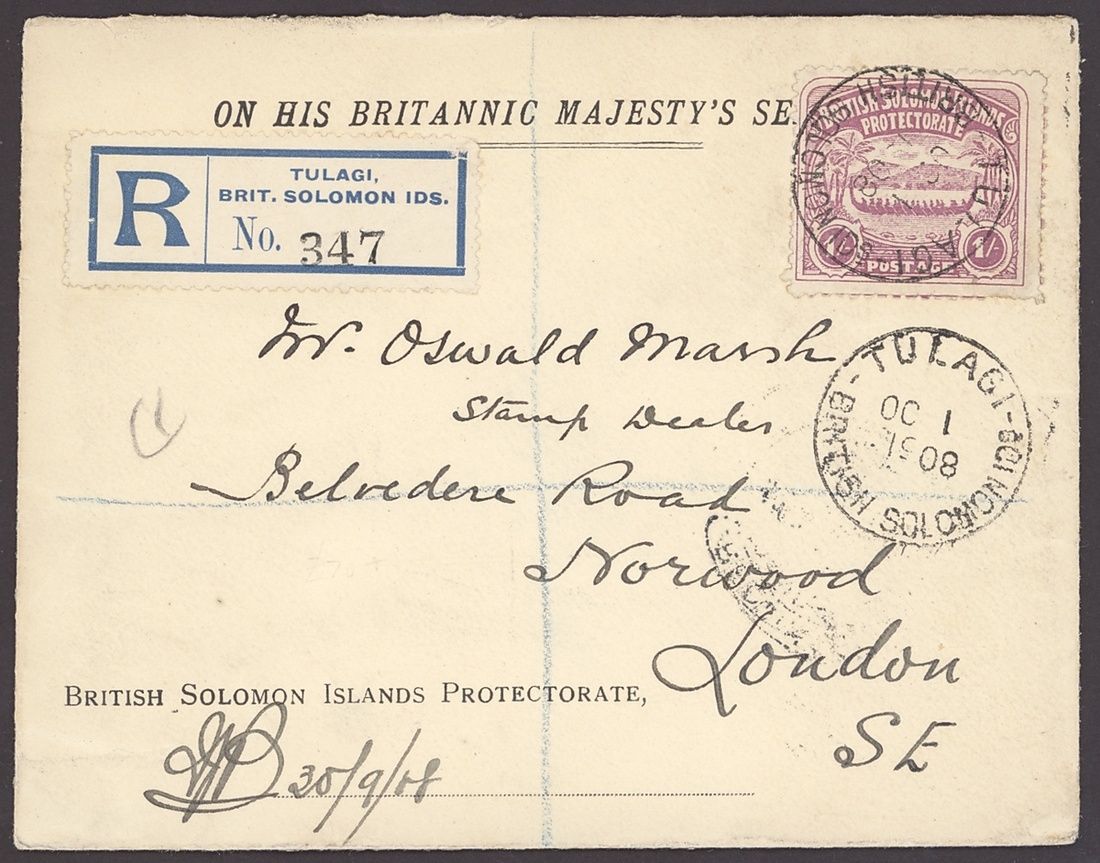 ON HIS BRITANNIC MAJESTY'S SE
R
TULAGI,
BRIT. SOLOMON IDS.
No. 347
BRITISH SOLOMON ISLANDS
PROTECTORATE
1/-
POSTAGE
1/-
TULAGI - BRITISH SOLOMON IDS
Mr. Oswald Marsh
Stamp Dealer
Belvedere Road
Norwood
London
SE
TULAGI - BRITISH SOLOMON IDS
1 OC
08
BRITISH SOLOMON ISLANDS PROTECTORATE,
30/9/08